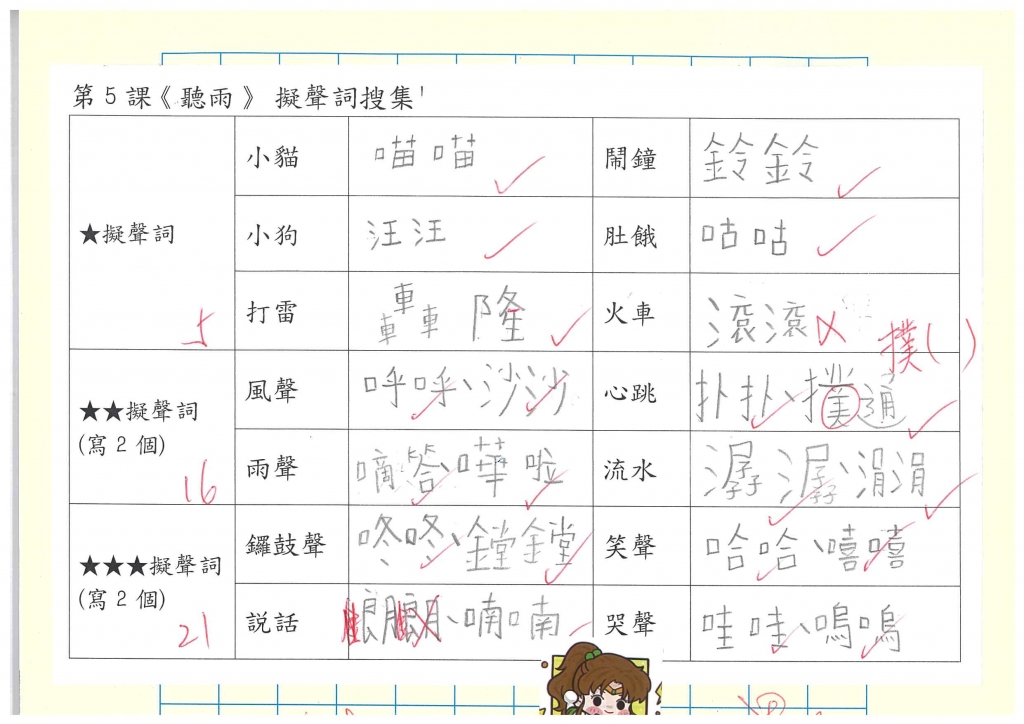 第5課《聽雨》 擬聲詞搜集
★擬聲詞
5
小貓 喵喵 鬧鐘 鈴鈴
小狗 汪汪 肚餓 咕咕
打雷 轟隆 火車 滾滾
撲( )
★★擬聲詞
(寫2個)
16
風聲 呼呼、沙沙 心跳 扑扑、撲通
雨聲 嘀答、嘩啦 流水 潺潺、涓涓
★★★擬聲詞
(寫2個)
21
鑼鼓聲 咚咚、鏜鏜 笑聲 哈哈、嘻嘻
説話 喃喃 哭聲 哇哇、嗚嗚